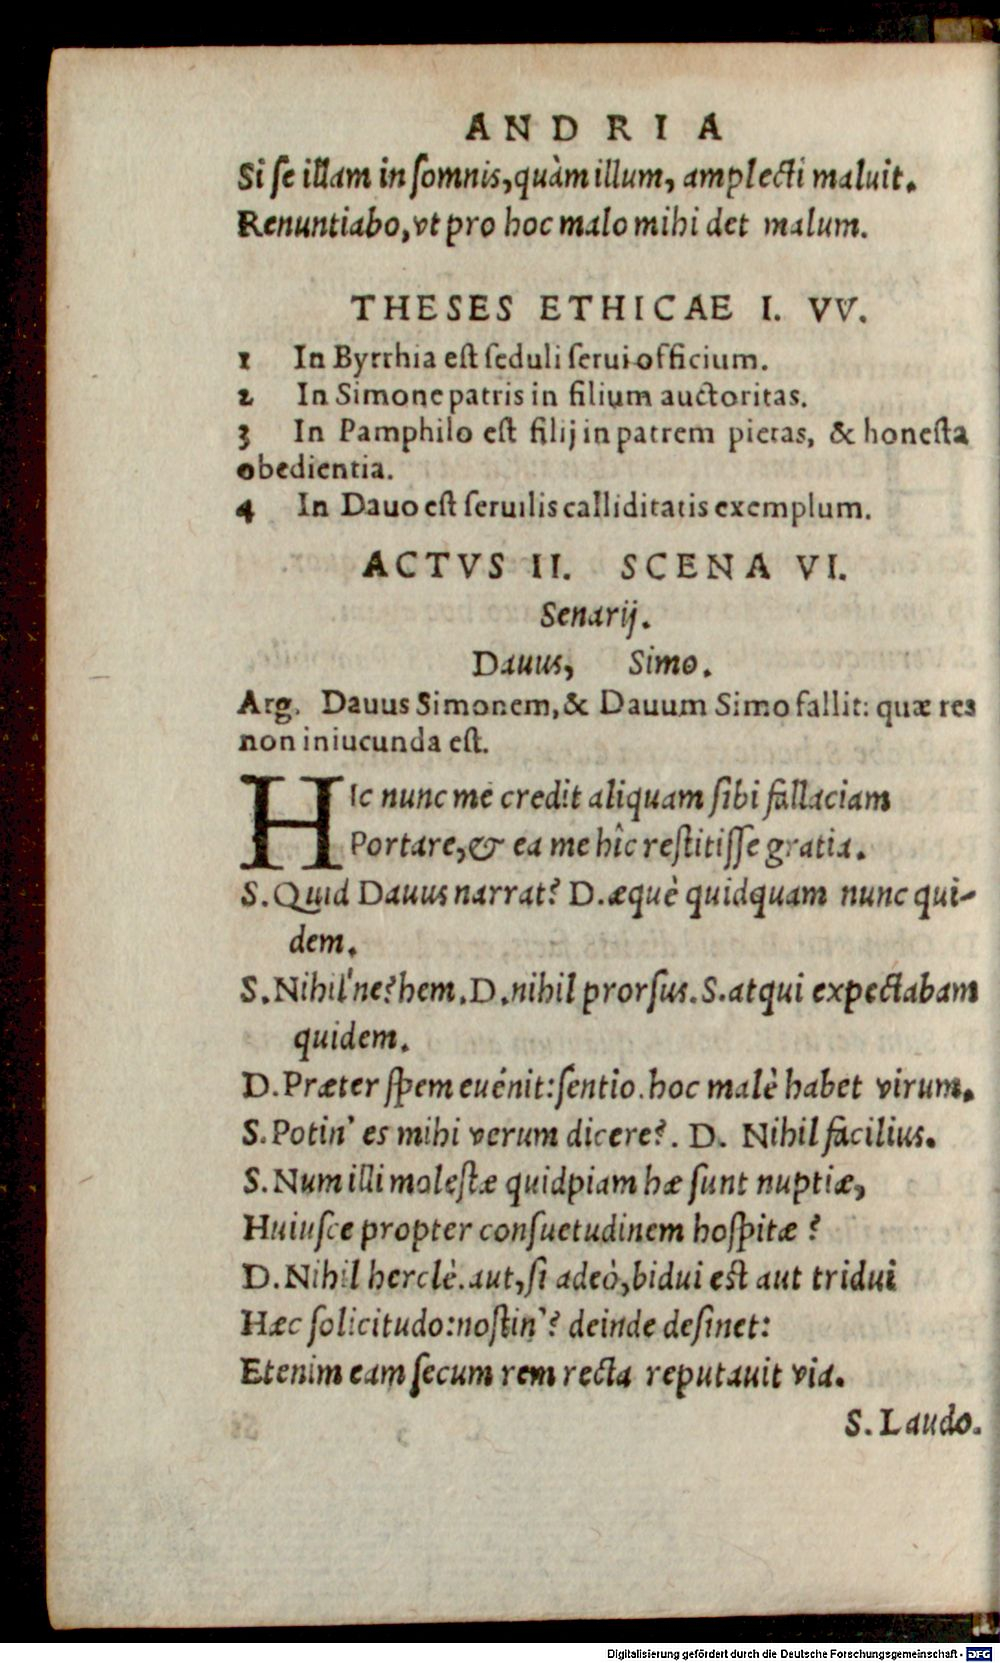 ANDRIA
Si ſe illam in ſomnis, quàm illum, amplecti maluit.
Renuntiabo, vt pro hoc malo mihi det malum.
THESES ETHICAE I. VV.
1 In Byrrhia eſt ſeduli ſerui officium.
2 In Simone patris in filium auctoritas.
3 In Pamphilo eſt filij in patrem pietas, & honeſta
obedientia.
4 In Dauo eſt ſeruilis calliditatis exemplum.
ACTVS II. SCENA VI.
Senarij.
Dauus, Simo.
Arg. Dauus Simonem, & Dauum Simo fallit: quæ res
non iniucunda eſt.
HIc nunc me credit aliquam ſibi fallaciam
Portare, & ea me hîc reſtitiſſe gratia.
S. Quid Dauus narrat? D. æquè quidquam nunc qui-
dem.
S. Nihil'ne? hem. D. nihil prorſus. S. atqui expectabam
quidem.
D. Præter ſpem euénit: ſentio. hoc malè habet virum.
S. Potin' es mihi verum dicere?. D. Nihil facilius.
S. Num illi moleſtæ quidpiam hæ ſunt nuptiæ,
Huiuſce propter conſuetudinem hoſpitæ?
D. Nihil herclè. aut, ſi adeò, bidui eſt aut tridui
Hæc ſolicitudo: noſtin'? deinde deſinet:
Etenim eam ſecum rem recta reputauit via.
S. Laudo.
Digitalisierung gefördert durch die Deutsche Forschungsgemeinschaft - DFG